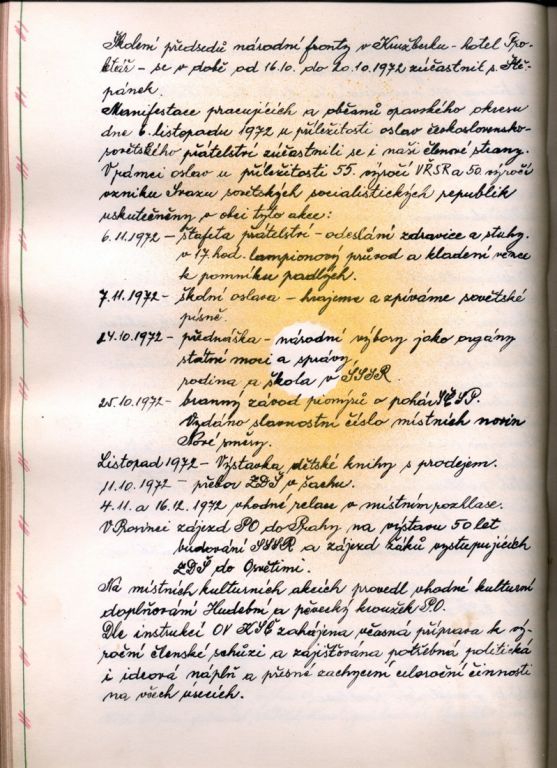 Školení předsedů národní fronty v Kružberku - hotel Pro-
letář - se v době od 16.10. do 20.10.1972 zúčastnil s. Ště-
pánek.
Manifestace pracujících a občanů opavského okresu
dne 6. listopadu 1972 u příležitosti oslav československo-
sovětského přátelství zúčastnili se i naši členové strany.
V rámci oslav u příležitosti 55. výročí VŘSR a 50 výročí
vzniku Svazu sovětských socialistických republik
uskutečněny v obci tyto akce:
6.11.1972 - štafeta přátelství - odeslání zdravice a stuhy.
v 17 hod. lampionový průvod a kladení věnce
k pomníku padlých.
7.11.1972 - školní oslava - hrajeme a zpíváme sovětské
písně.
24.10.1972 - přednáška - národní výbory jako orgány
státní moci a správy,
rodina a škola v SSSR.
25.10.1972 - branný závod pionýrů o pohár
Vydáno slavnostní číslo místních novin
Nové směry.
Listopad 1972 - Výstavka dětské knihy s prodejem.
11.10.1972 - přebor ZDŠ v šachu.
4.11. a 16.12.1972 vhodné relace v místním rozhlase.
V Prosinci zájezd PO do Prahy na výstavu 50 let
budování SSSR a zájezd žáků vystupujících
ZDŠ do Osvětimi.
Na místních kulturních akcích provedl vhodné kulturní
doplňování Hudební a pěvecký kroužek PO.
Dle instrukcí OV KSČ zahájena včasná příprava k vý-
roční členské schůzi a zajišťována potřebná politická
i ideová náplň a přesné zachycení celoroční činnosti
na všech úsecích.